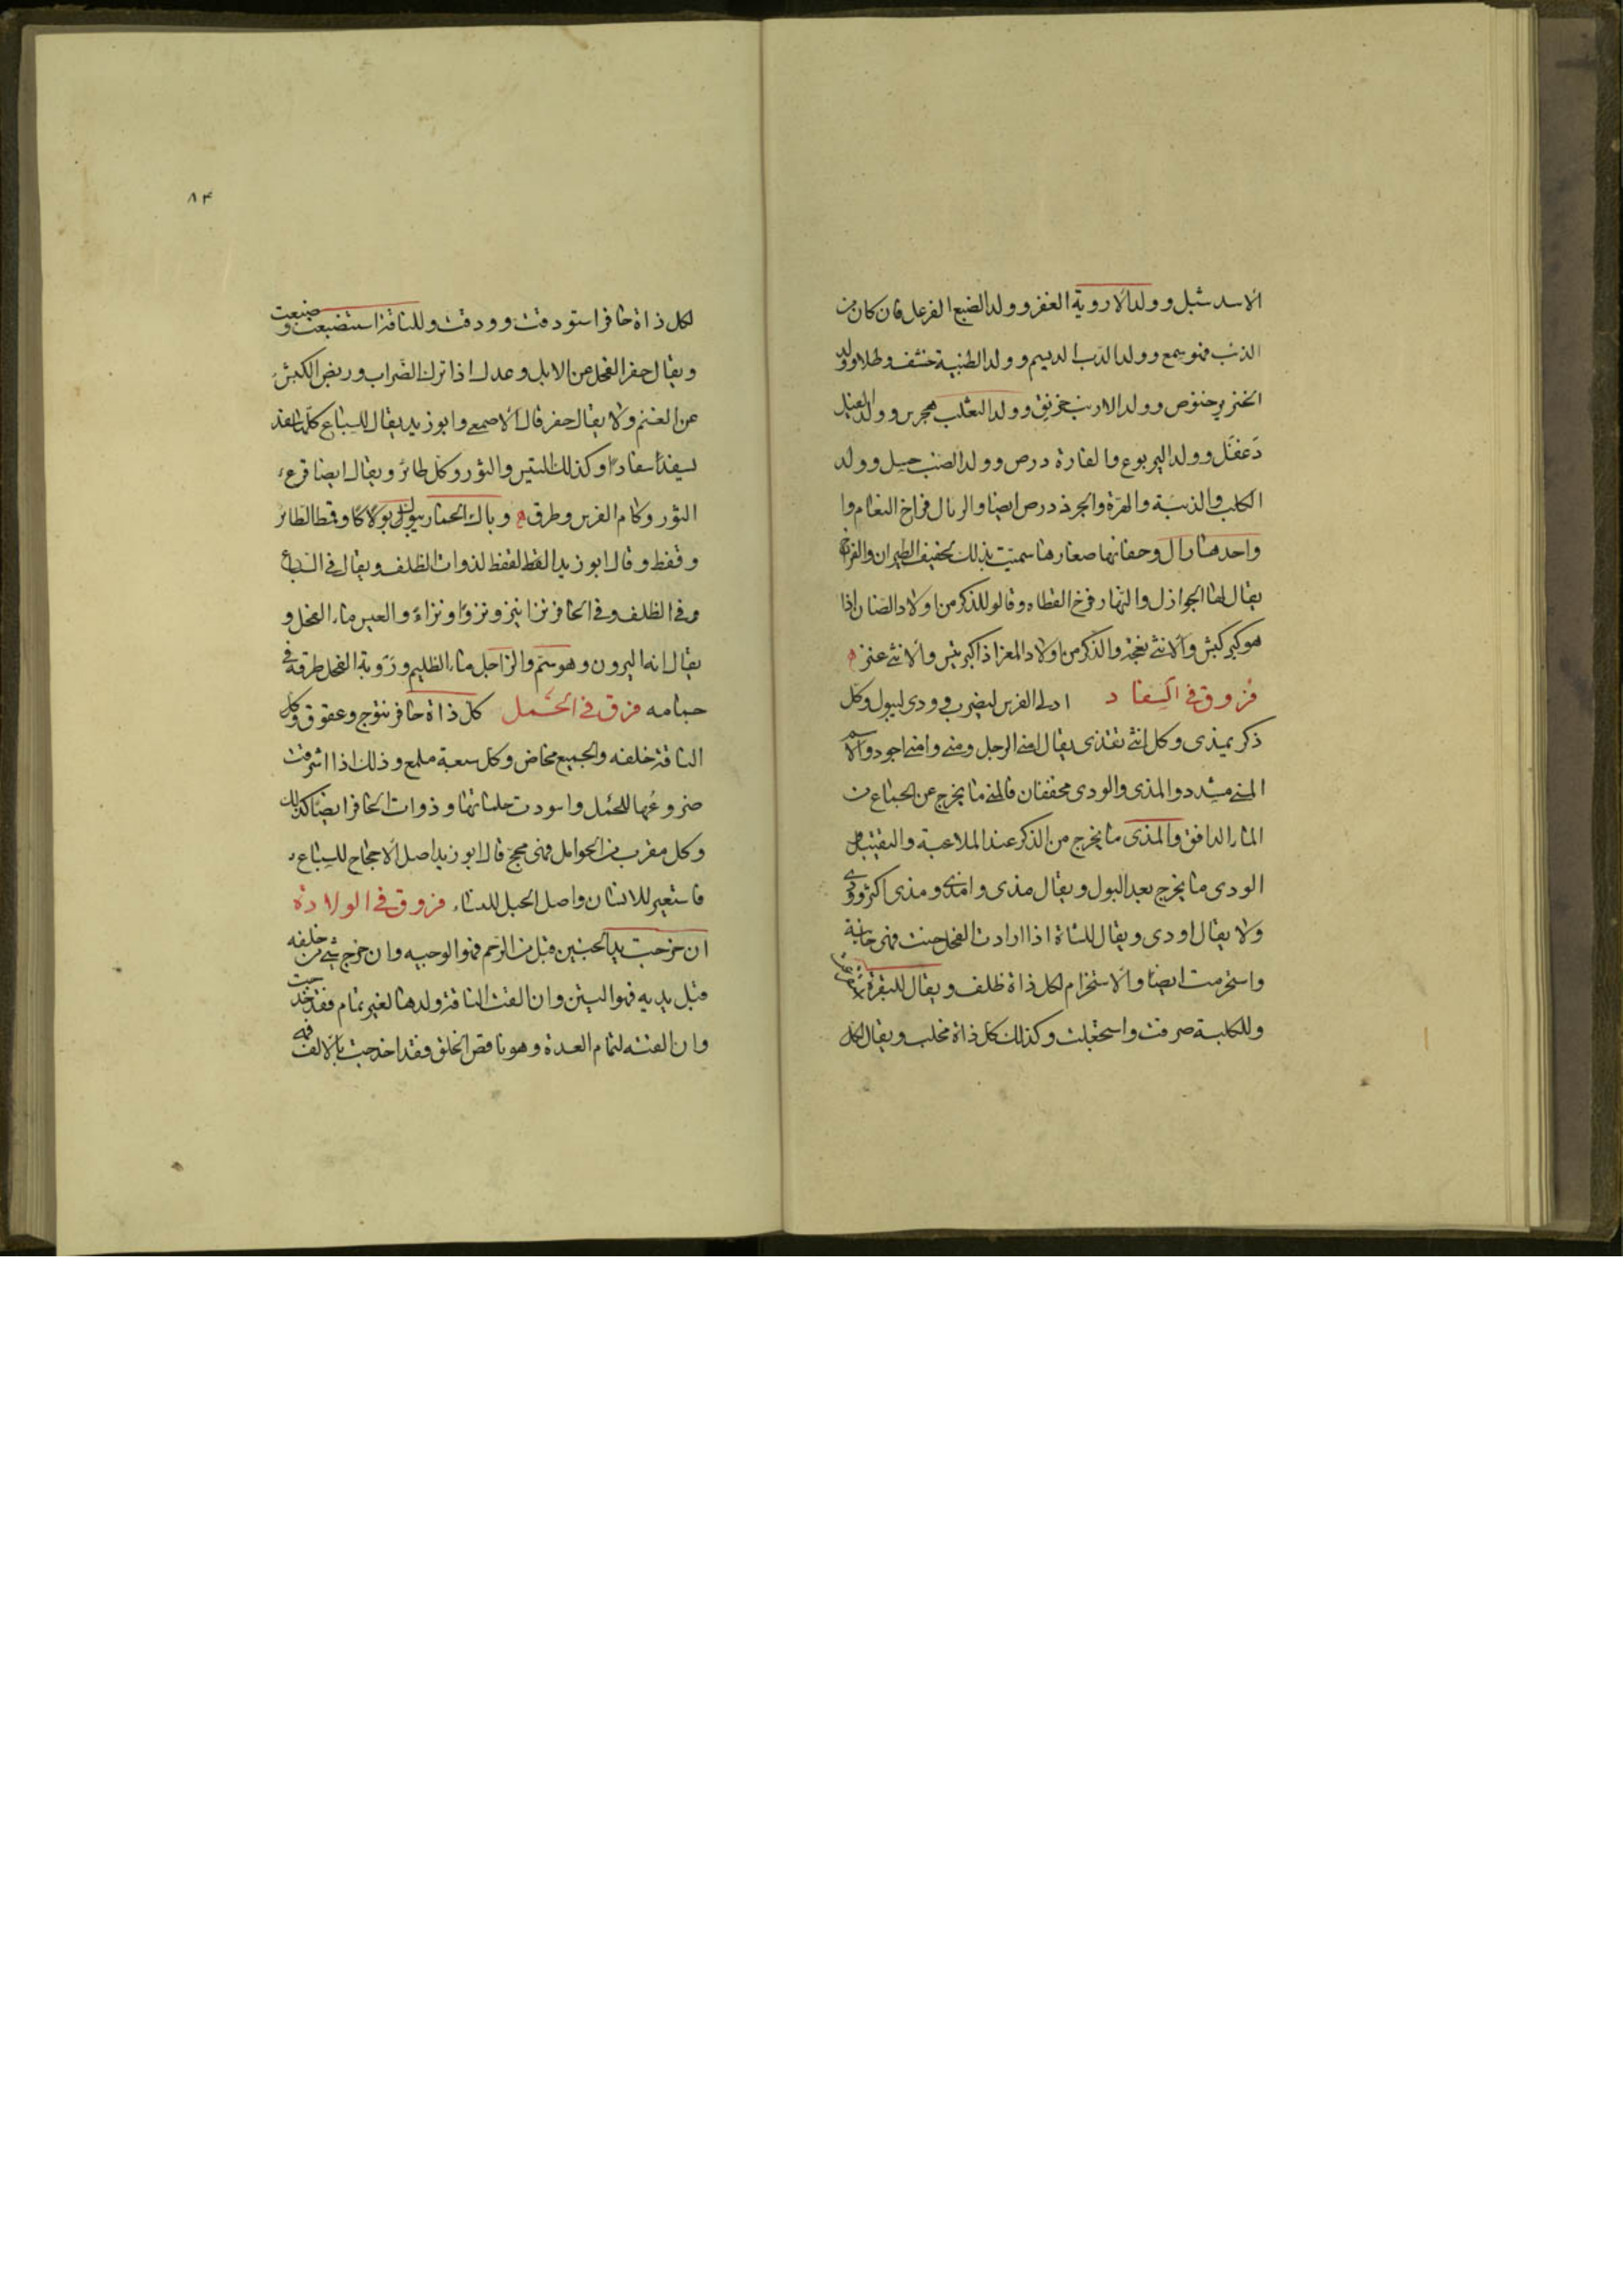 الاسد شبل وولد الاروية الغفر وولد الضبع الفرعل فان كان من
الذئب فهو سمع وولد الدب الديسم وولد الظبية خشف وطلا وولد
الخنزير خنوص وولد الارنب خرنق وولد الثعلب هجرس وولد الفيل
دَغفَل وولد اليربوع والفارة درص وولد الضب حسل وولد
الكلب والذئبة والهرّة والجرذ درص ايضا والرئال فراخ النعام وا
واحدها رال وحفانها صغارها سميت بذلك لحفيف الطيران والفراخ
يقال لها الجوازل والنهار فرخ القطاه وقالو للذكر من اولاد الضان اذا
هو كبر كبش والانثى نعجة والذكر من اولاد المعز اذا كبر تيس والانثى عنز
فروق في السِفاد ادلى الفرس ليضرب وودى ليبول وكل
ذكر يمذى وكل انثى تقذى يقال امنى الرجل ومنى وامنى اجود والاسم
المنى مشدد والمذى والودى مخففان فالمنى ما يخرج عن الجماع من
الماء الدافق والمذى ما يخرج من الذكر عند الملاعبة والتقبيل
الودى ما يخرج بعد البول ويقال مذى وامذى ومذى اكثر وودى
ولا يقال اودى ويقال للشاة اذا ارادت الفحل حنت فهى حانية
واستحرمت ايضا والاستحرام لكل ذاة ظلف ويقال للبقرة
وللكلبة صرفت واستجعلت وكذلك كل ذاة مخلب ويقال لكل
٨٤
لكل ذاة حافر استودقت وودقت وللناقة استضبعت وضبعت
ويقال جفر الفحل من الابل وعدل اذا ترك الضّراب وربض الكبش
عن الغنم ولا يقال جفر قال الاصمعى وابو زيد يقال للسِباع كلها سفد
يسفد سفادا وكذلك التيس والثور وكل طائر ويقال ايضا قرع
الثور وكام الفرس وطرق وباك الحمار يبوك بوكا وقمط الطائر
وقفط وقال ابو زيد القفط لذوات الظلف ويقال في السباع
وفي الظلف وفي الحافر نزا ينزو نزوًا ونزاءً والعيس ماء الفحل و
يقال انه اليرون وهو سَمّ والزاجل ماء الظليم ورَوبة الفحل طرقه في
جمامه فرق في الحَمل كل ذاة حافر نتوج وعقوق وكل
الناقة خلفه والجميع مخاض وكل سبعة ملمع وذلك اذا اشرقت
ضروعُها للحمل واسودت حلماتها وذوات الحافر ايضا كذلك
وكل مقرب من الحوامل فهى مجحّ قال ابو زيد اصل الاجحاح للسِباع
فاستعير للانسان واصل الحبل للنساء فروق في الولادة
ان خرجت يد الجنين قبل من الرّحم فهو الوجيه وان خرج شئ من خلفه
قبل يديه فهو اليتن وان القت الناقة ولدها لغير تمام فقد خدجت
وان القته لتمام العدة وهو ناقص الخلق فقد اخدجت بالالف فهى